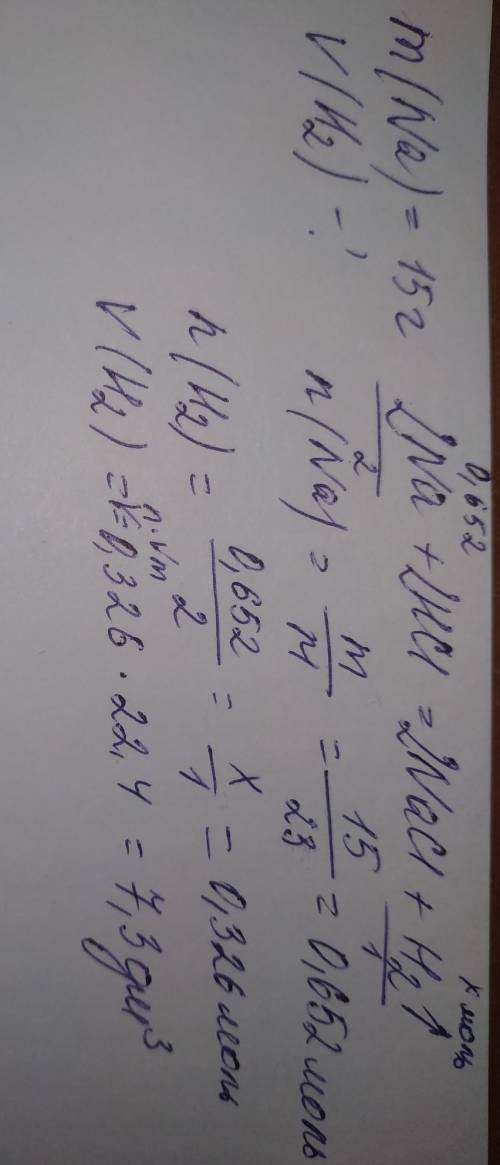 m(Na) = 15г
V(H₂) - ?
0,652 x моль
2Na + 2HCl = 2NaCl + H₂↑
2 1
n(Na) = m/M = 15/23 = 0,652 моль
n(H₂) = 0,652/2 = x/1 = 0,326 моль
n·Vm
V(H₂) = 0,326 · 22,4 = 7,3 дм³